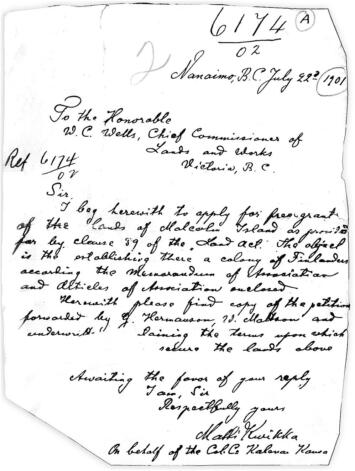 6174
02
A
2
Nanaimo, B.C. July 22d 1901
To the Honorable
W. C. Wells, Chief Commissioner of
Lands and Works
Victoria, B.C.
Ref 6174
02
Sir.
I beg herewith to apply for free grant
of the lands of Malcolm Island as provided
for by clause 39 of the "Land Act." The object
is the establishing there a colony of Finlanders
according the Memorandum of Association
and Articles of Association enclosed
Herewith please find copy of the petition
forwarded by J. Hermanson, W. Mattson and
the terms upon which
secure the lands above
Awaiting the favor of your reply
I am, Sir
Respectfully yours
Matti
On behalf of the Col. Co Kalevan Kansa